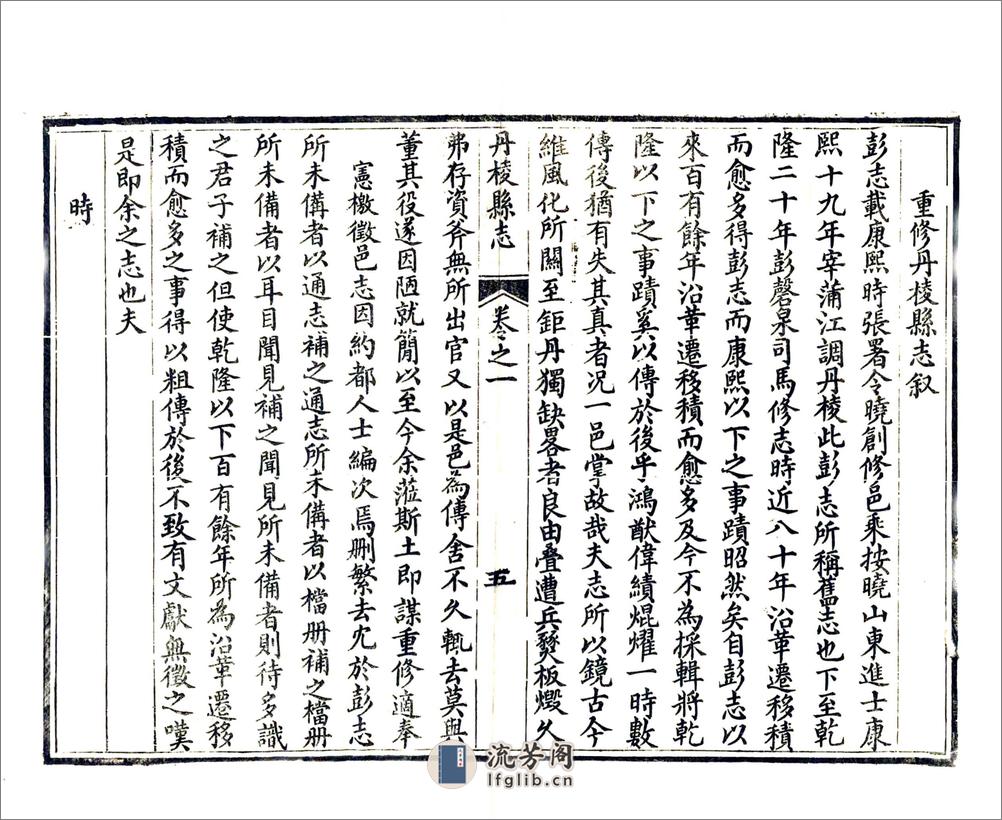 重修丹棱縣志叙
彭志載康熙時張署令曉創修邑乘按曉山東進士康
熙十九年宰蒲江調丹棱此彭志所稱舊志也下至乾
隆二十年彭磬泉司馬修志時近八十年沿革遷移積
而愈多得彭志而康熙以下之事蹟昭然矣自彭志以
來百有餘年沿革遷移積而愈多及今不為採輯將乾
隆以下之事蹟奚以傳於後乎鴻猷偉績焜燿一時數
傳後猶有失其真者况一邑掌故哉夫志所以鏡古今
維風化所關至鉅丹獨缺畧者良由疊遭兵燹板燬久
丹棱縣志 卷之一 五
弗存資斧無所出官又以是邑為傳舍不久輒去莫與
董其役遂因陋就簡以至今余蒞斯土即謀重修適奉
憲檄徵邑志因約都人士編次焉删繁去冗於彭志
所未備者以通志補之通志所未備者以檔册補之檔册
所未備者以耳目聞見補之聞見所未備者則待多識
之君子補之但使乾隆以下百有餘年所為沿革遷移
積而愈多之事得以粗傳於後不致有文獻無徵之嘆
是即余之志也夫
時
流芳阁
lfglib.cn